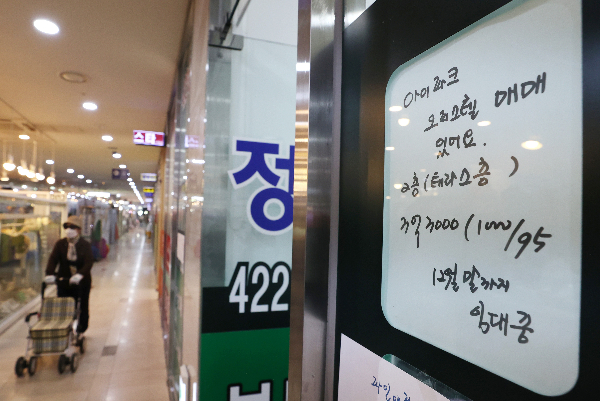 아이파크
오피스텔 매매
있어요.
3억3000 (1000/95
12월 말까지
임대중
(테라스층)
정
422
스타